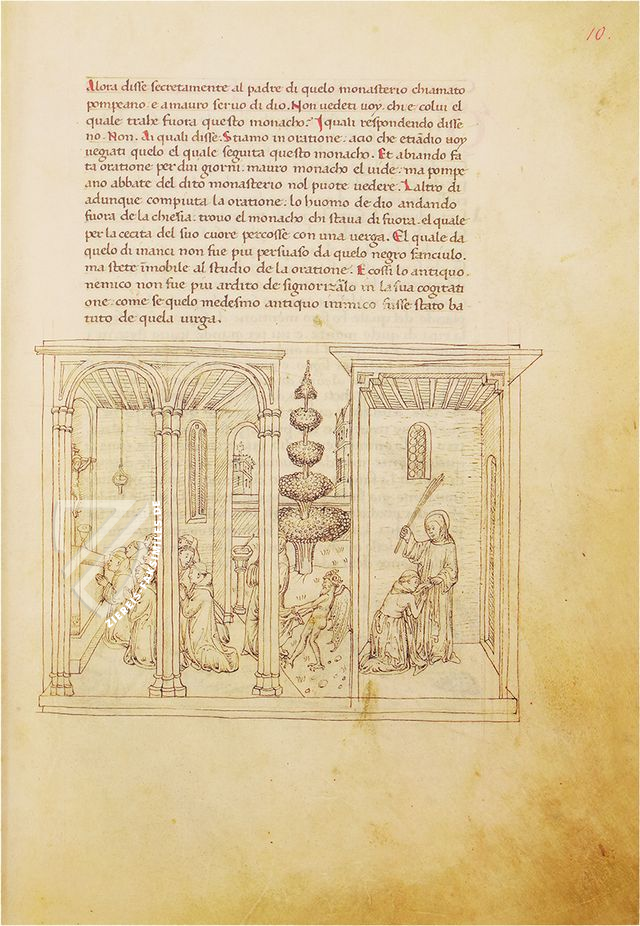 10.
Alora disse secretamente al padre di quelo monasterio chiamato
pompeano. e a mauro seruo di dio. Non uedeti uoy. chi e colui el
quale trahe fuora questo monacho. I quali respondendo disse
no. Non. Ai quali disse. Stiamo in oratione. acio che etiādio uoy
uegiati quelo el quale seguita questo monacho. Et abiando fa
ta oratione per dui giorni. mauro monacho el uide. ma pompe
ano abbate del dito monasterio nol puote uedere. Laltro di
adunque compiuta la oratione. lo huomo de dio andando
fuora de la chiesia. trouo el monacho chi staua di fuora. el quale
per la cecita del suo cuore percosse con una uerga. El quale da
quelo di inanci non fue piu persuaso da quelo negro fanciulo.
ma stete īmobile al studio de la oratione. E cossi lo antiquo.
nemico non fue piu ardito de signorizalo in la sua cogitati
one. come se quelo medesmo antiquo inimico fusse stato ba
tuto de quela uirga.
ziereis-facsimiles.de